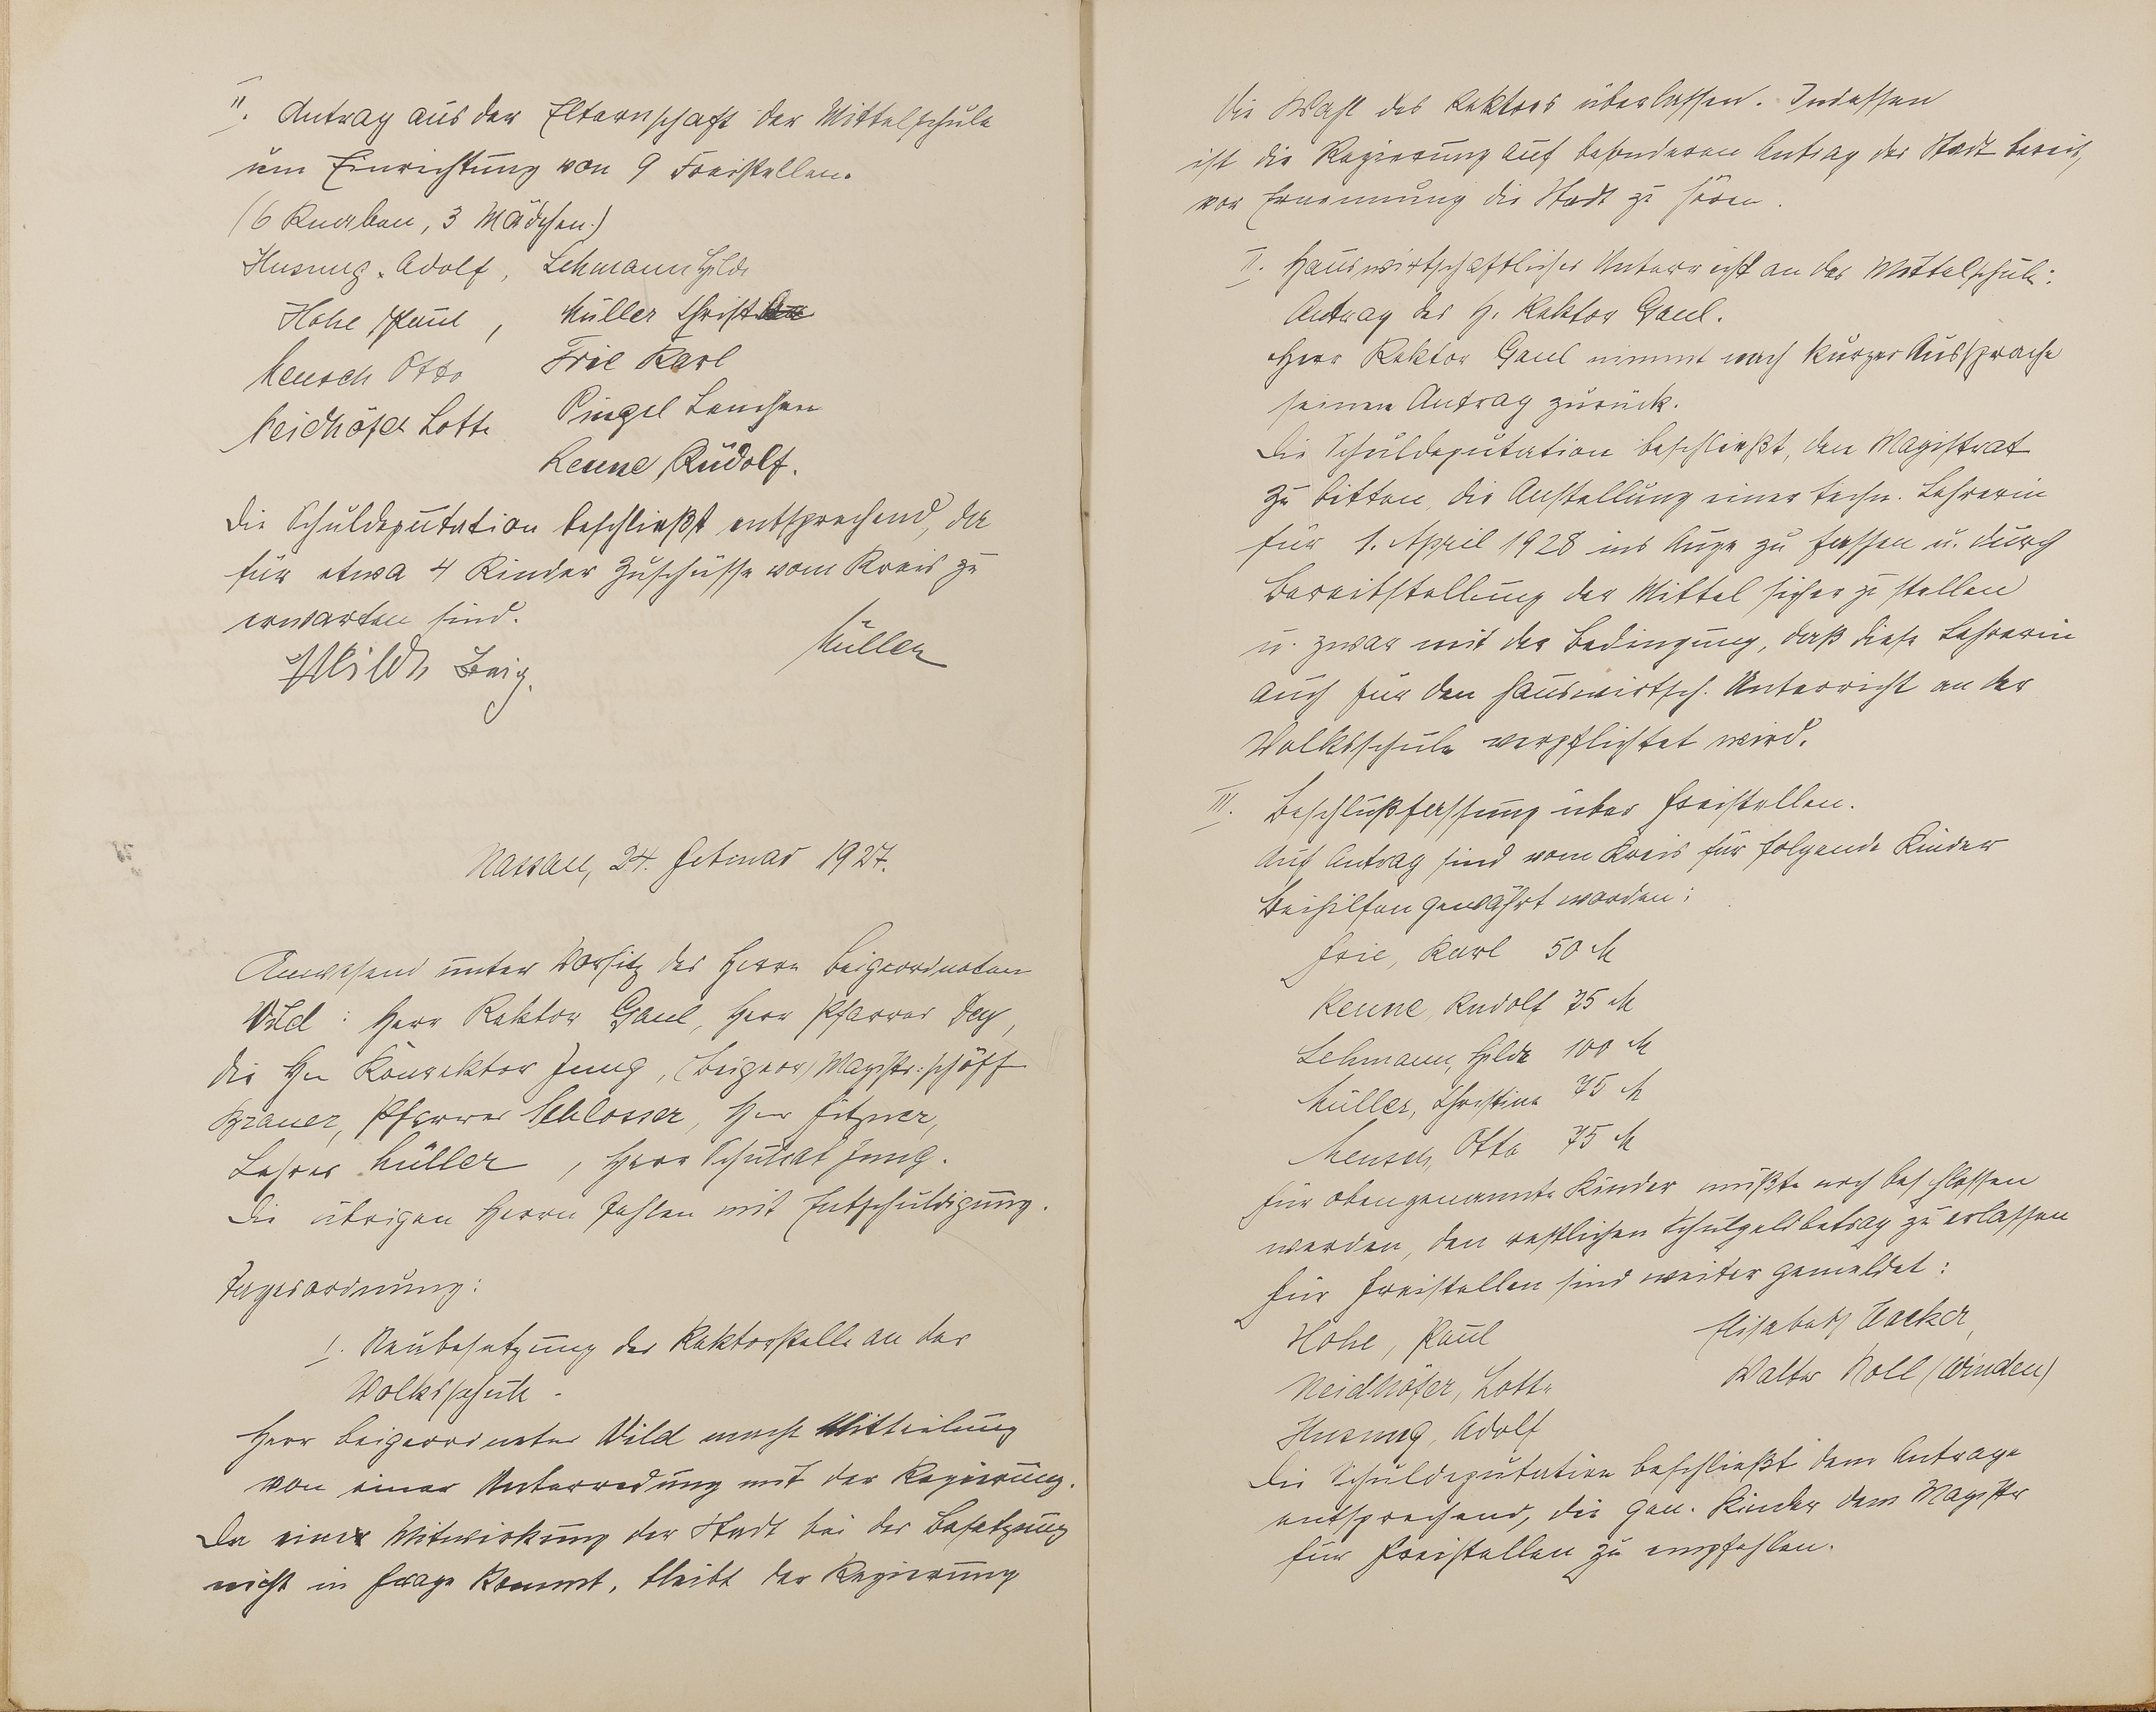 II. Antrag aus der Elternschaft der Mittelschule
um Einrichtung von 9 Freistellen.
(6 Knaben, 3 Mädchen.)
Adolf, Lehmann Hilde
Hohe Paul, Müller Christ
Mensch Otto Frie Karl
Neidhöfer Lotte Pingel Lenchen
Kenne, Rudolf.
Die Schuldeputation beschließt entsprechend, da
für etwa 4 Kinder Zuschüsse vom Kreis zu
erwarten sind.
Müller
Wild Beig.
Nassau, 24. Februar 1927.
Anwesend unter Vorsitz des Herrn Beigeordneten
Wild: Herr Rektor Gaul, Herr Pfarrer Dey,
die Hn Konrektor Jung, (Beigeor) Magistr: schöff
Brauer, Pfarrer Schlosser, Herr Fitzner,
Lehrer Müller, Herr Schulrat Jung.
Die übrigen Herrn fehlen mit Entschuldigung.
Tagesordnung:
I. Neubesetzung der Rektorstelle an der
Volksschule.
Herr Beigeordneter Wild macht Mitteilung
von einer Unterredung mit der Regierung.
Da eine Mitwirkung der Stadt bei der Besetzung
nicht in Frage kommt, bleibt der Regierung
die Wahl des Rektors überlassen. Indessen
ist die Regierung auf besonderen Antrag der Stadt bereit,
vor Ernennung die Stadt zu hören.
II. Hauswirtschaftlicher Unterricht an der Mittelschule:
Antrag des H. Rektor Gaul.
Herr Rektor Gaul nimmt nach kurzer Aussprache
seinen Antrag zurück.
Die Schuldeputation beschließt, den Magistrat
zu bitten, die Anstellung einer techn. Lehrerin
für 1. April 1928 ins Auge zu fassen u. durch
Bereitstellung der Mittel sicher zu stellen
u. zwar mit der Bedingung, daß diese Lehrerin
auch für den hauswirtsch. Unterricht an der
Volksschule verpflichtet wird.
III. Beschlußfassung über Freistellen.
Auf Antrag sind vom Kreis für folgende Kinder
Beihilfen gewährt worden:
Frie, Karl 50 M
Kenne, Rudolf 75 M
Lehmann, Hilde 100 M
Müller, Christine 75 M
Mensch, Otto 75 M
Für obengenannte Kinder müßte noch beschlossen
werden, den restlichen Schulgeldbetrag zu erlassen
Für Freistellen sind weiter gemeldet:
Hohe, Paul Elisabeth Wacker,
Neidhöfer, Lotte Walter Noll (Winden)
Adolf
Die Schuldeputation beschließt dem Antrage
entsprechend, die gen. Kinder dem Magistr
für Freistellen zu empfehlen.